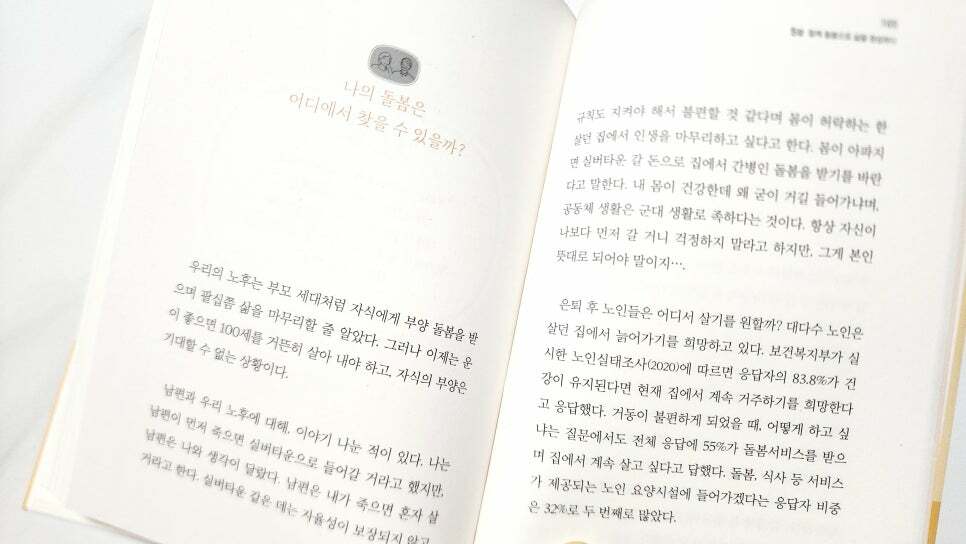 나의 돌봄은
어디에서 찾을 수 있을까?
우리의 노후는 부모 세대처럼 자식에게 부양 돌봄을 받
으며 팔십쯤 삶을 마무리할 줄 알았다. 그러나 이제는 운
이 좋으면 100세를 거뜬히 살아 내야 하고, 자식의 부양은
기대할 수 없는 상황이다.
남편과 우리 노후에 대해, 이야기 나눈 적이 있다. 나는
남편이 먼저 죽으면 실버타운으로 들어갈 거라고 했지만,
남편은 나와 생각이 달랐다. 남편은 내가 죽으면 혼자 살
거라고 한다. 실버타운 같은 데는 자율성이 보장되지 않고
규칙도 지켜야 해서 불편할 것 같다며 몸이 허락하는 한
살던 집에서 인생을 마무리하고 싶다고 한다. 몸이 아파지
면 실버타운 갈 돈으로 집에서 간병인 돌봄을 받기를 바란
다고 말한다. 내 몸이 건강한데 왜 굳이 거길 들어가냐며,
공동체 생활은 군대 생활로 족하다는 것이다. 항상 자신이
나보다 먼저 갈 거니 걱정하지 말라고 하지만, 그게 본인
뜻대로 되어야 말이지….
은퇴 후 노인들은 어디서 살기를 원할까? 대다수 노인은
살던 집에서 늙어가기를 희망하고 있다. 보건복지부가 실
시한 노인실태조사(2020)에 따르면 응답자의 83.8%가 건
강이 유지된다면 현재 집에서 계속 거주하기를 희망한다
고 응답했다. 거동이 불편하게 되었을 때, 어떻게 하고 싶
냐는 질문에서도 전체 응답에 55%가 돌봄서비스를 받으
며 집에서 계속 살고 싶다고 답했다. 돌봄, 식사 등 서비스
가 제공되는 노인 요양시설에 들어가겠다는 응답자 비중
은 32%로 두 번째로 많았다.